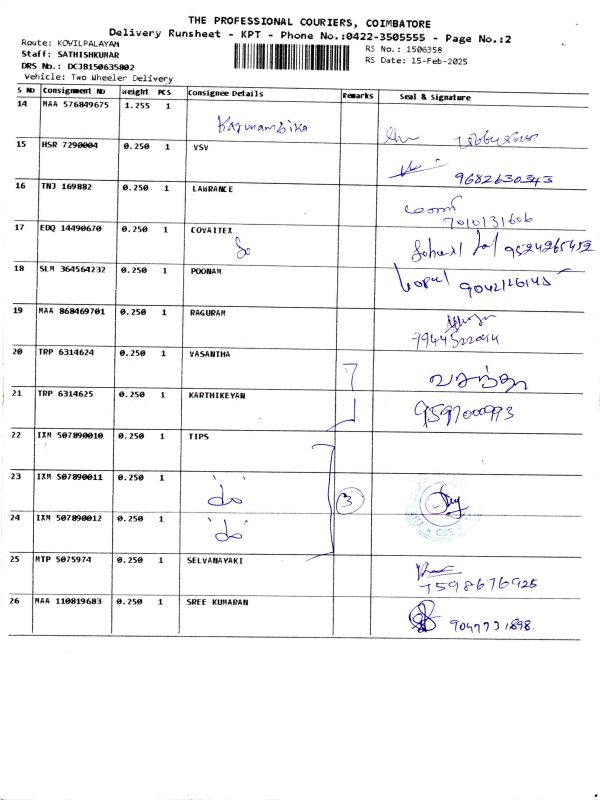 THE PROFESSIONAL COURIERS, COIMBATORE
Delivery Runsheet - KPT - Phone No.:0422-3505555 - Page No.:2
Route: KOVILPALAYAM
Staff: SATHISHKUMAR
DRS No.: DCJB150635802
Vehicle: Two Wheeler Delivery
RS No.: 1506358
RS Date: 15-Feb-2025
S No Consignment No Weight PCS Consignee Details Remarks Seal & Signature
14 MAA 576849675 1.255 1
Karunambika
15 HSR 7290004 0.250 1 VSV
9682630343
16 TNJ 169882 0.250 1 LAWRANCE
7010131606
17 EDQ 14490670 0.250 1 COVAITEX
9524265452
18 SLM 364564232 0.250 1 POONAM
Gopal 9042126145
19 MAA 868469701 0.250 1 RAGURAM
7944522014
20 TRP 6314624 0.250 1 VASANTHA
வசந்தா
21 TRP 6314625 0.250 1 KARTHIKEYAN
9597000993
22 IXM 507890010 0.250 1 TIPS
23 IXM 507890011 0.250 1 "do" 3
24 IXM 507890012 0.250 1 "do"
25 MTP 5075974 0.250 1 SELVANAYAKI
7598676925
26 MAA 110819683 0.250 1 SREE KUMARAN
9047731898